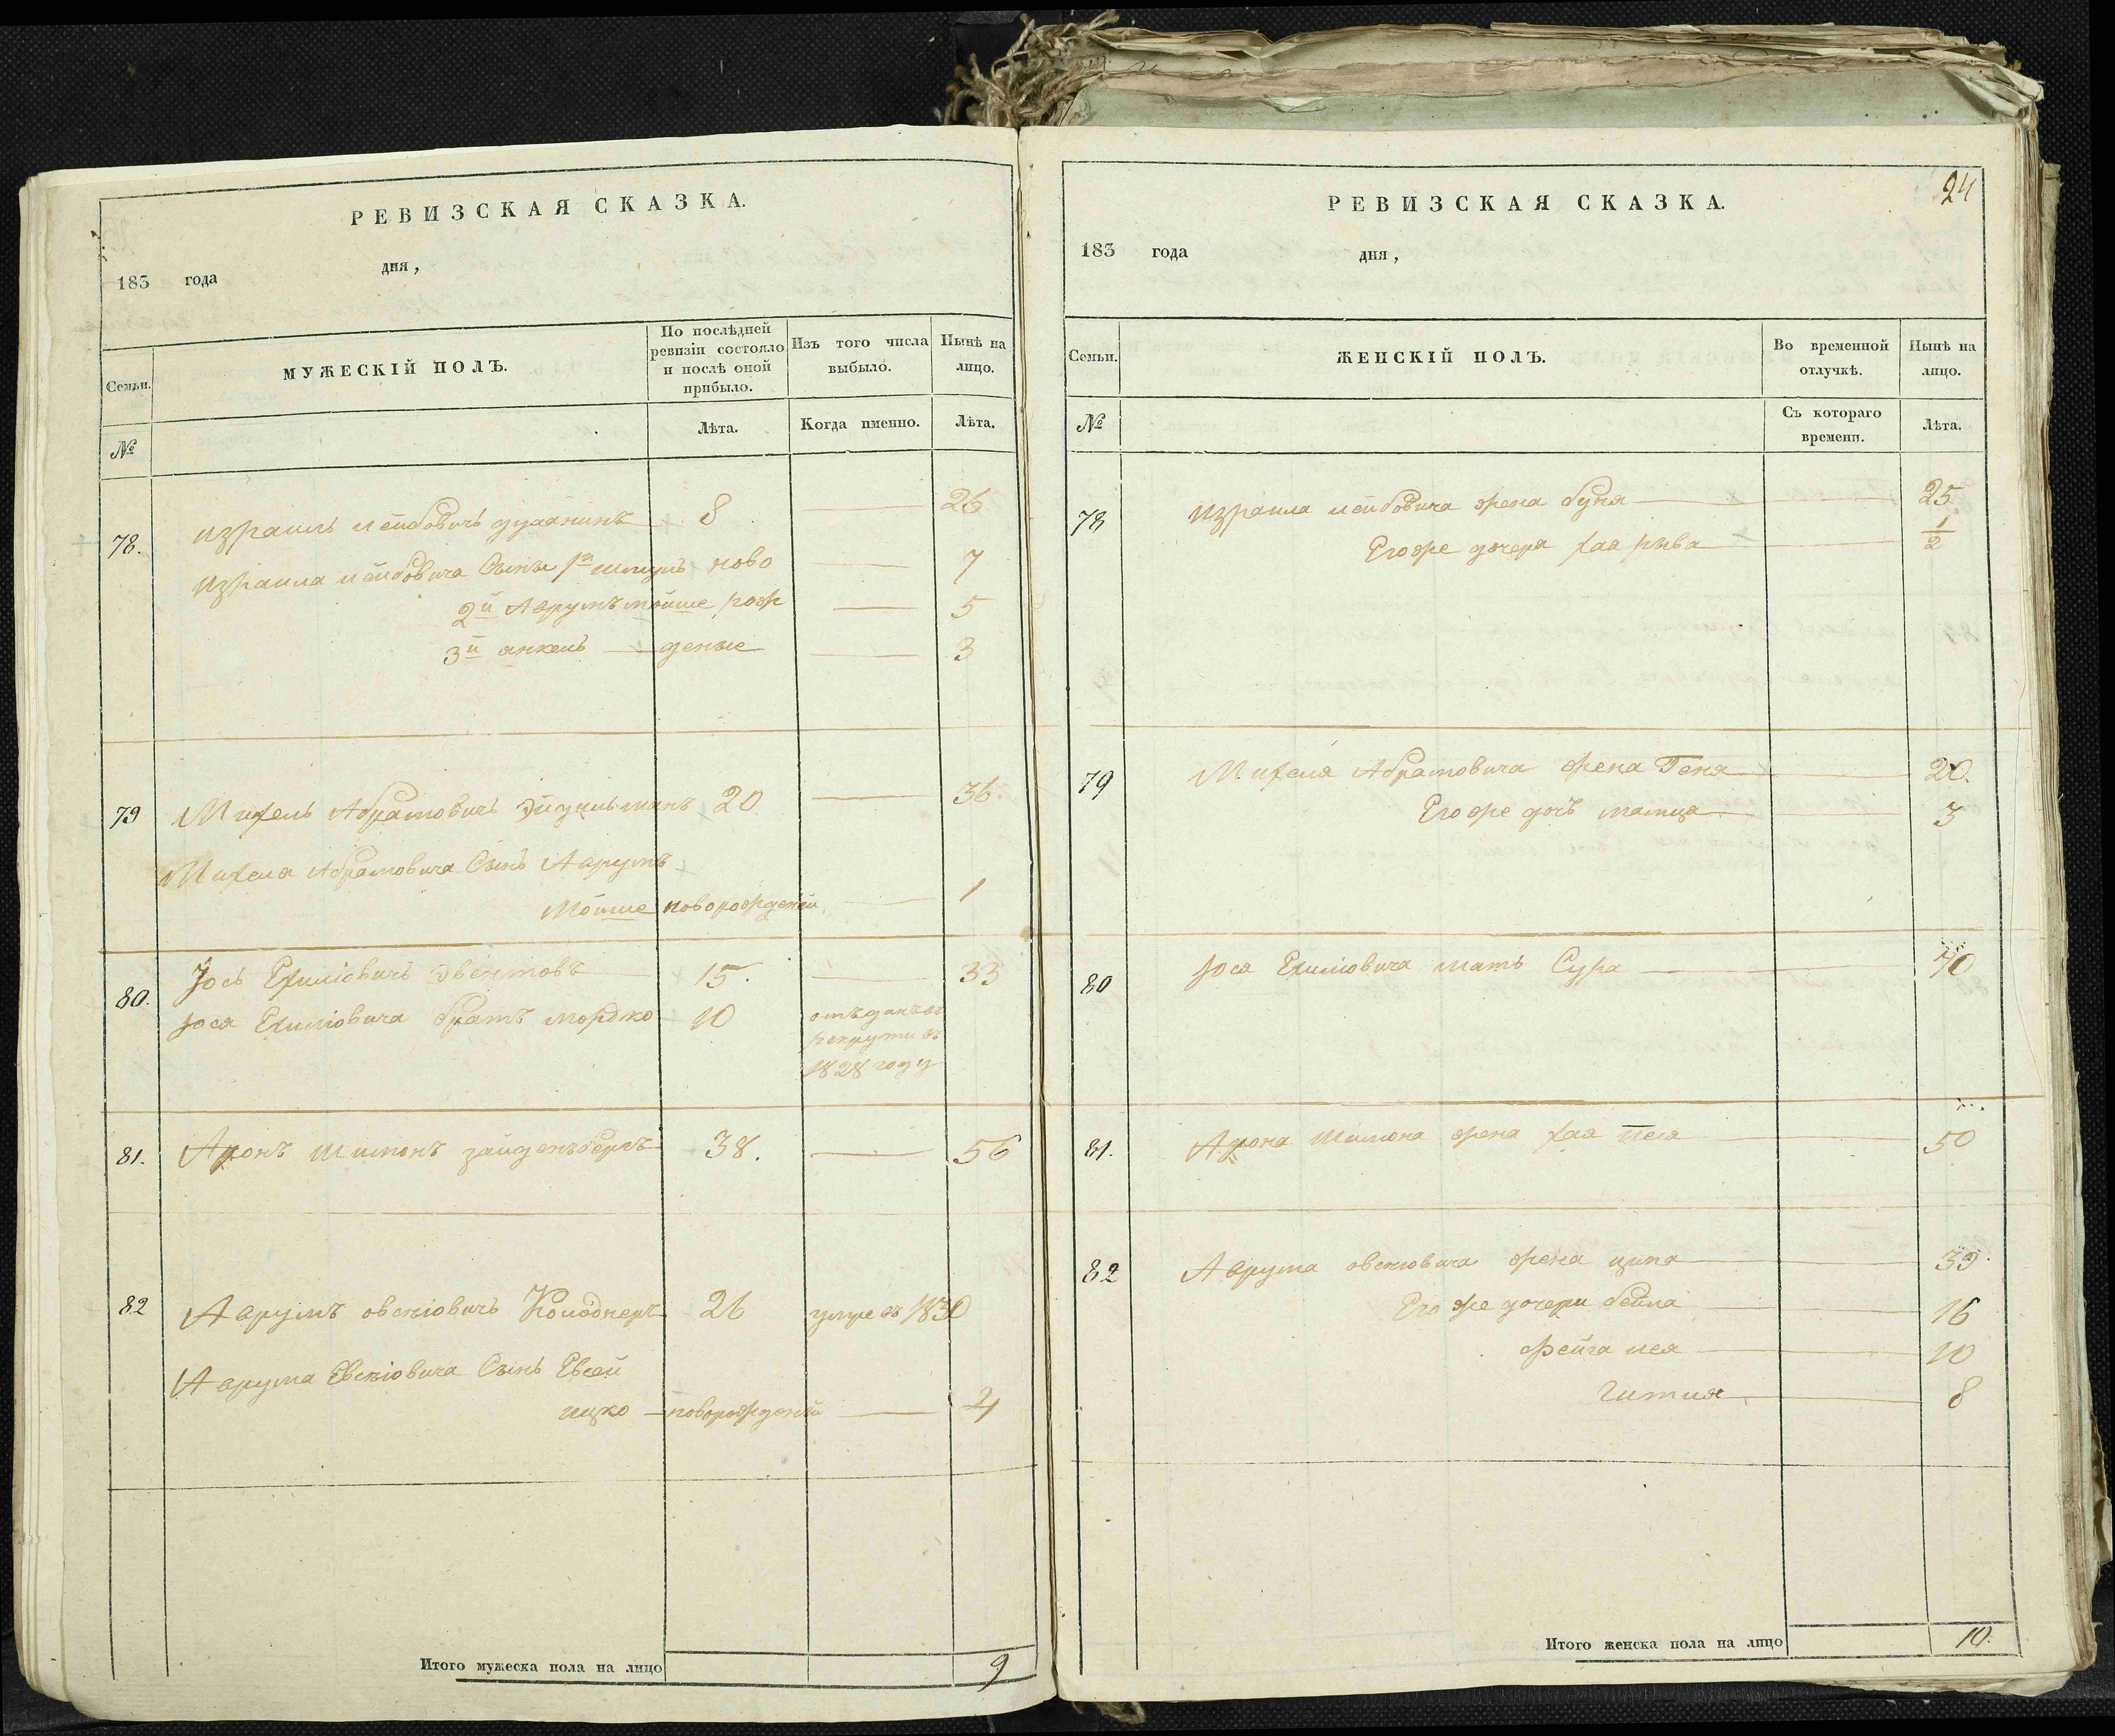 РЕВИЗСКАЯ СКАЗКА.
183 года дня,
Семьи. МУЖЕСКІЙ ПОЛЪ. По послѣдней ревизіи состояло и послѣ оной прибыло. Изъ того числа выбыло. Нынѣ на лицо.
№ Лѣта. Когда именно. Лѣта.
78. Израиль Лейбовичъ 8 — 26
Израиля Лейбовича Сынъ 1й Шмуль ново — 7
2й Аврумъ Мойше рож — 5
3й Янкель — деные — 3
79 Михель Абрамовичъ Эйдильманъ 20 — 36
Михеля Абрамовича Сынъ Аврумъ
Мойше новорожденый — 1
80. Іось Ехилiовичъ 15. — 33
Іося Ехилiовича братъ Мордко 10 отъданъ въ
рекруты въ
1828 году
81. Аронъ Шимонъ Зайденъбергъ 38. — 56
82 Аврумъ Овсѣiовичъ 26 умре въ 1830
Аврума Евсѣiовича Сынъ Евсей
Ицко — новорожденый — 4
Итого мужеска пола на лицо 9
24
РЕВИЗСКАЯ СКАЗКА.
183 года дня,
Семьи. ЖЕНСКІЙ ПОЛЪ. Во временной отлучкѣ. Нынѣ на лицо.
№ Съ котораго времени. Лѣта.
78 Израиля Лейбовича жена Буня — 25
Его же дочера Хая Рыва — 1/2
79 Михеля Абрамовича жена Геня — 20.
Его же дочъ — 3
80 Іося Ехилiовича мать Сура — 70
81. Арона Шимона жена Хая Песя — 50
82 Аврума Овсѣiовича жена Ципа — 39.
Его же дочери Бейла — 16
Фейга Лея — 10
Гитля — 8
Итого женска пола на лицо 10.